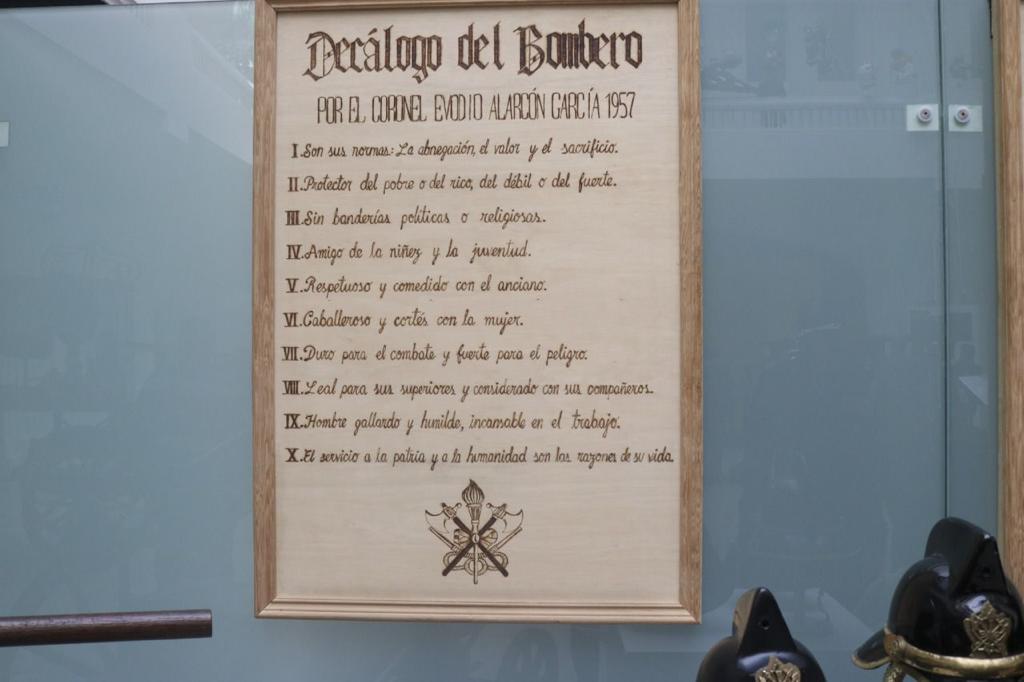 Decálogo del Bombero
POR EL CORONEL EVODIO ALARCÓN GARCÍA 1957
I.Son sus normas: La abnegación, el valor y el sacrificio.
II.Protector del pobre o del rico, del débil o del fuerte.
III.Sin banderías políticas o religiosas.
IV.Amigo de la niñez y la juventud.
V.Respetuoso y comedido con el anciano.
VI.Caballeroso y cortés con la mujer.
VII.Duro para el combate y fuerte para el peligro.
VIII.Leal para sus superiores y considerado con sus compañeros.
IX.Hombre gallardo y humilde, incansable en el trabajo.
X.El servicio a la patria y a la humanidad son las razones de su vida.